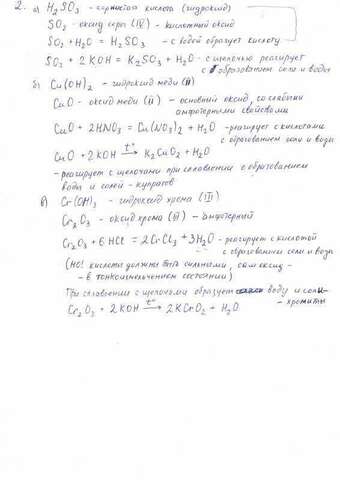 2. а) H₂SO₃ - сернистая кислота (гидроксид)
SO₂ - оксид серы (IV) - кислотный оксид
SO₂ + H₂O = H₂SO₃ - с водой образует кислоту
SO₂ + 2KOH = K₂SO₃ + H₂O - с щелочью реагирует
с образованием соли и воды
б) Cu(OH)₂ - гидроксид меди (II)
CuO - оксид меди (II) - основный оксид, со слабыми
амфотерными свойствами
CuO + 2HNO₃ = Cu(NO₃)₂ + H₂O - реагирует с кислотами
с образованием соли и воды
CuO + 2KOH →t° K₂CuO₂ + H₂O
- реагирует с щелочами при сплавлении с образованием
воды и солей - купратов
в) Cr(OH)₃ - гидроксид хрома (III)
Cr₂O₃ - оксид хрома (III) - амфотерный
Cr₂O₃ + 6HCl = 2CrCl₃ + 3H₂O - реагирует с кислотой
с образованием соли и воды
(НО! кислоты должны быть сильными, сам оксид -
- в тонкоизмельченном состоянии)
При сплавлении с щелочами образует воду и соли-
- хромиты
Cr₂O₃ + 2KOH →t° 2KCrO₂ + H₂O